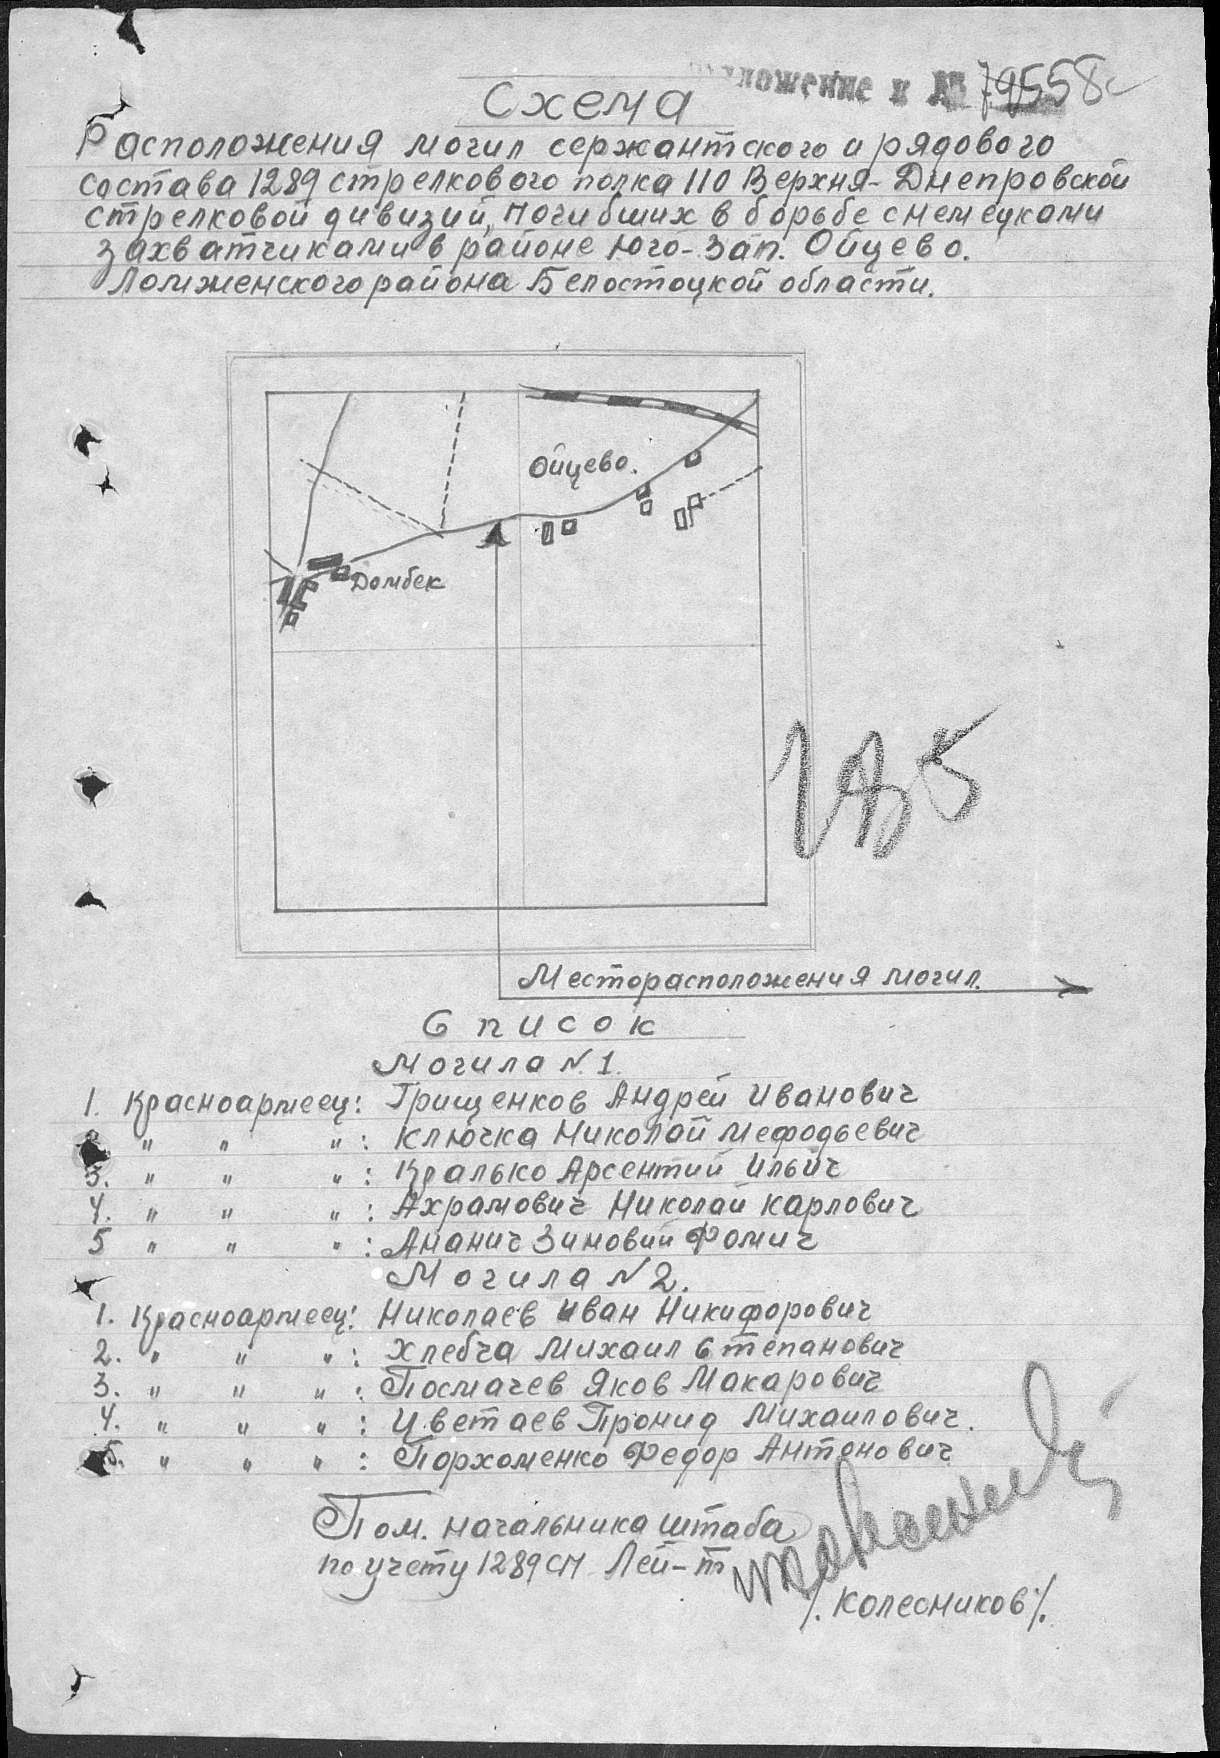 ложение к № 79558с
Схема
Расположения могил сержантского и рядового
состава 1289 стрелкового полка 110 Верхня-Днепровской
стрелковой дивизий, погибших в борьбе с немецками
захватчиками в районе юго-зап. Ойцево.
Ломженского района Белостоцкой области.
Ойцево.
Домбек
Месторасположения могил.
Список
Могила N.1.
1. Красноармеец: Грищенков Андрей Иванович
2. " " ": Ключка Николай Мефодьевич
3. " " ": Кралько Арсентий Ильич
4. " " ": Ахрамович Николай Карлович
5 " " ": Ананич Зиновий Фомич
Могила N2.
1. Красноармеец: Николаев Иван Никифорович
2. " " ": Хлебча Михаил Степанович
3. " " ": Посмачев Яков Макарович
4. " " ": Цветаев Промид Михаилович.
5. " " ": Порхоменко Федор Антонович
Пом. начальника штаба
по учету 1289 сп Лей-т
/. Колесников /.